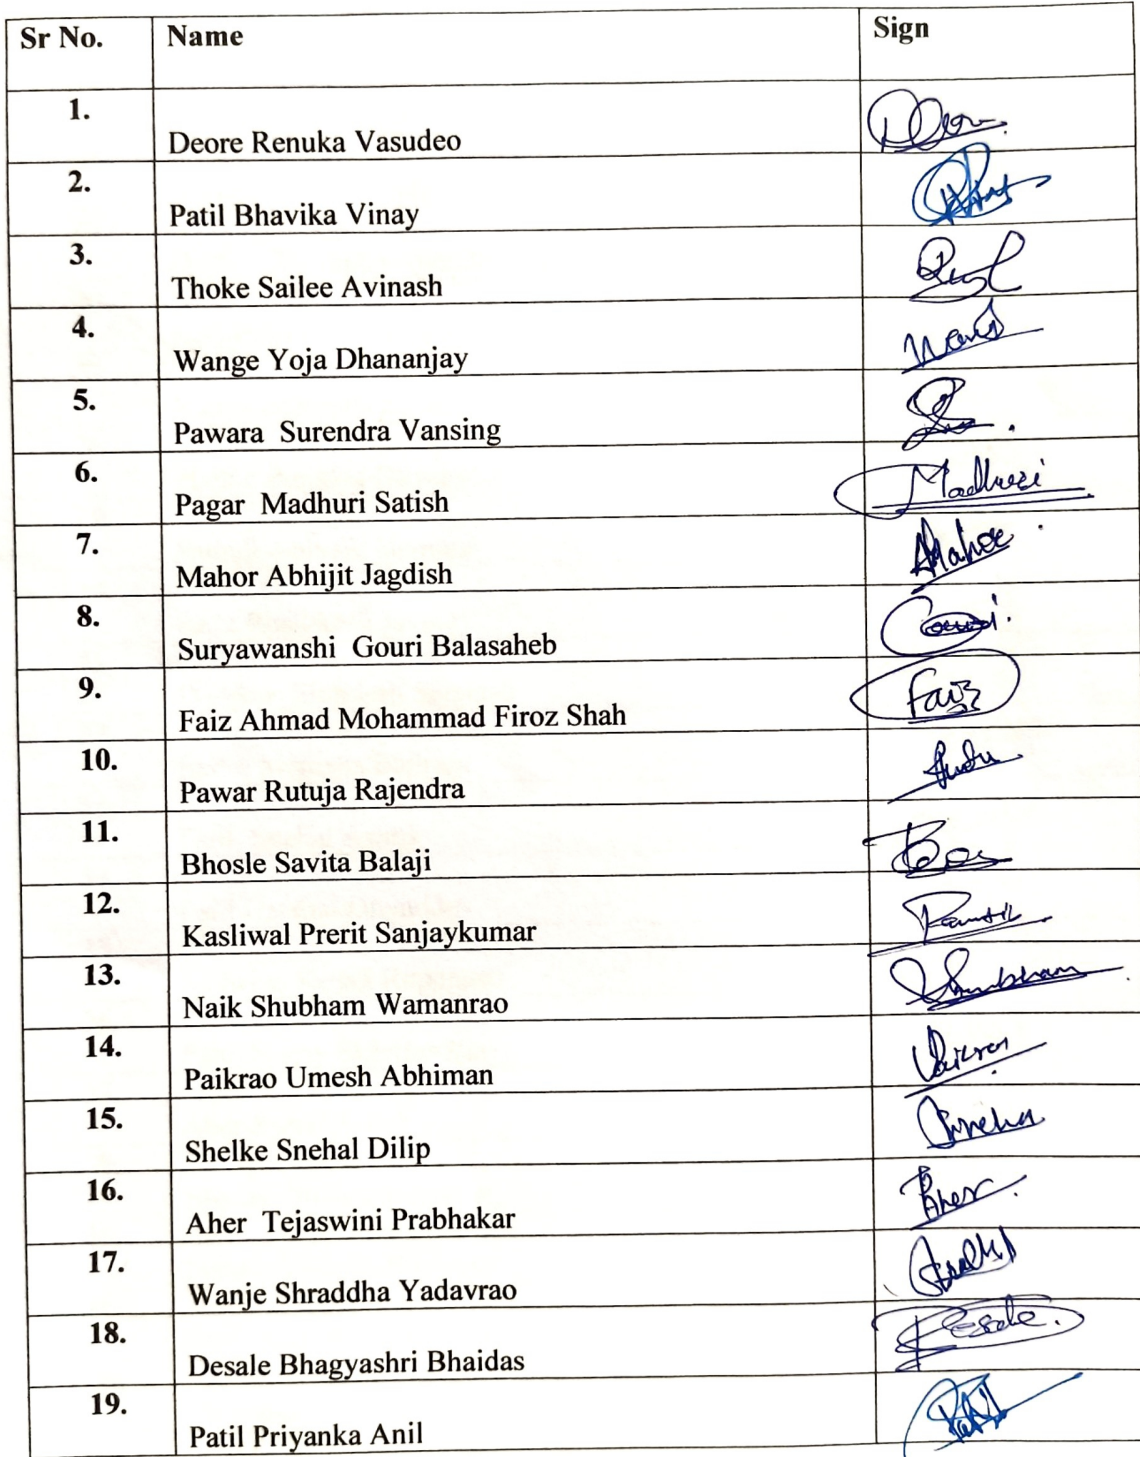 Sr No. Name Sign
1. Deore Renuka Vasudeo Deore
2. Patil Bhavika Vinay
3. Thoke Sailee Avinash
4. Wange Yoja Dhananjay
5. Pawara Surendra Vansing
6. Pagar Madhuri Satish Madhuri
7. Mahor Abhijit Jagdish AMahor
8. Suryawanshi Gouri Balasaheb
9. Faiz Ahmad Mohammad Firoz Shah Faiz
10. Pawar Rutuja Rajendra
11. Bhosle Savita Balaji
12. Kasliwal Prerit Sanjaykumar
13. Naik Shubham Wamanrao Shubham
14. Paikrao Umesh Abhiman
15. Shelke Snehal Dilip Sneha
16. Aher Tejaswini Prabhakar Aher
17. Wanje Shraddha Yadavrao
18. Desale Bhagyashri Bhaidas Desale
19. Patil Priyanka Anil